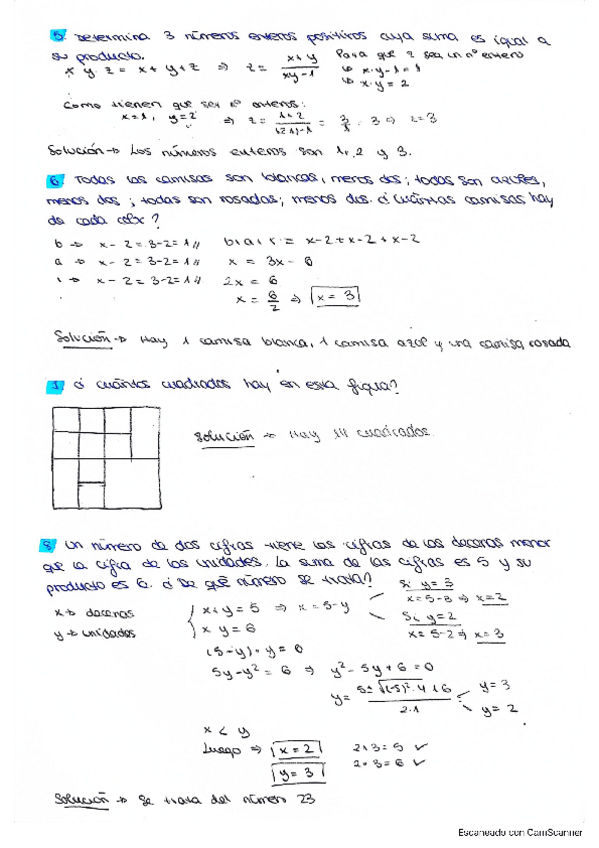 5. Determina 3 números enteros positivos cuya suma es igual a
su producto.
x y z = x + y + z ⇒ z = x+y / xy-1 Para que z sea un nº entero
↳ x·y-1=1
↳ x·y = 2
Como tienen que ser nº enteros:
x=1, y=2 ⇒ z = 1+2 / (2·1)-1 = 3/1 = 3 ⇒ z=3
Solución → Los números enteros son 1, 2 y 3.
6. Todas las camisas son blancas, menos dos; todas son azules,
menos dos; todas son rosadas; menos dos. ¿Cuántas camisas hay
de cada color?
b → x - 2 = 3-2 = 1 // b+a+r = x-2+x-2+x-2
a → x - 2 = 3-2 = 1 // x = 3x - 6
r → x - 2 = 3-2 = 1 // 2x = 6
x = 6/2 ⇒ x = 3
Solución → Hay 1 camisa blanca, 1 camisa azul y una camisa rosada
7. ¿Cuántos cuadrados hay en esta figura?
Solución → Hay 14 cuadrados.
8. Un número de dos cifras tiene las cifras de las decenas menor
que la cifra de las unidades. La suma de las cifras es 5 y su
producto es 6. ¿De qué número se trata?
x → decenas
y → unidades
x+y = 5 ⇒ x = 5-y
x y = 6
Si y = 3
x = 5-3 ⇒ x=2
Si y=2
x = 5-2 ⇒ x=3
(5-y)·y = 6
5y-y² = 6 ⇒ y² - 5y + 6 = 0
y= 5±√(-5)²-4·1·6 / 2·1
y=3
y=2
x < y
Luego ⇒ x = 2 2+3=5 ✓
y = 3 2·3=6 ✓
Solución → Se trata del número 23
Escaneado con CamScanner